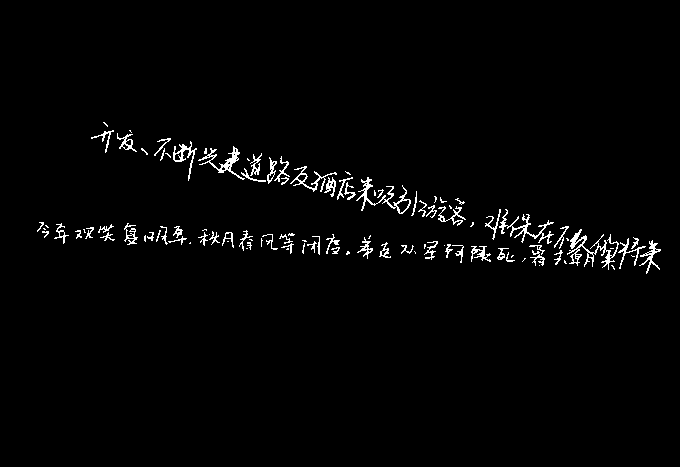 开发、不断兴建道路及酒店来吸引游客，难保在不久的将来
今年欢笑复明年，秋月春风等闲度。弟走从军阿姨死，暮去朝